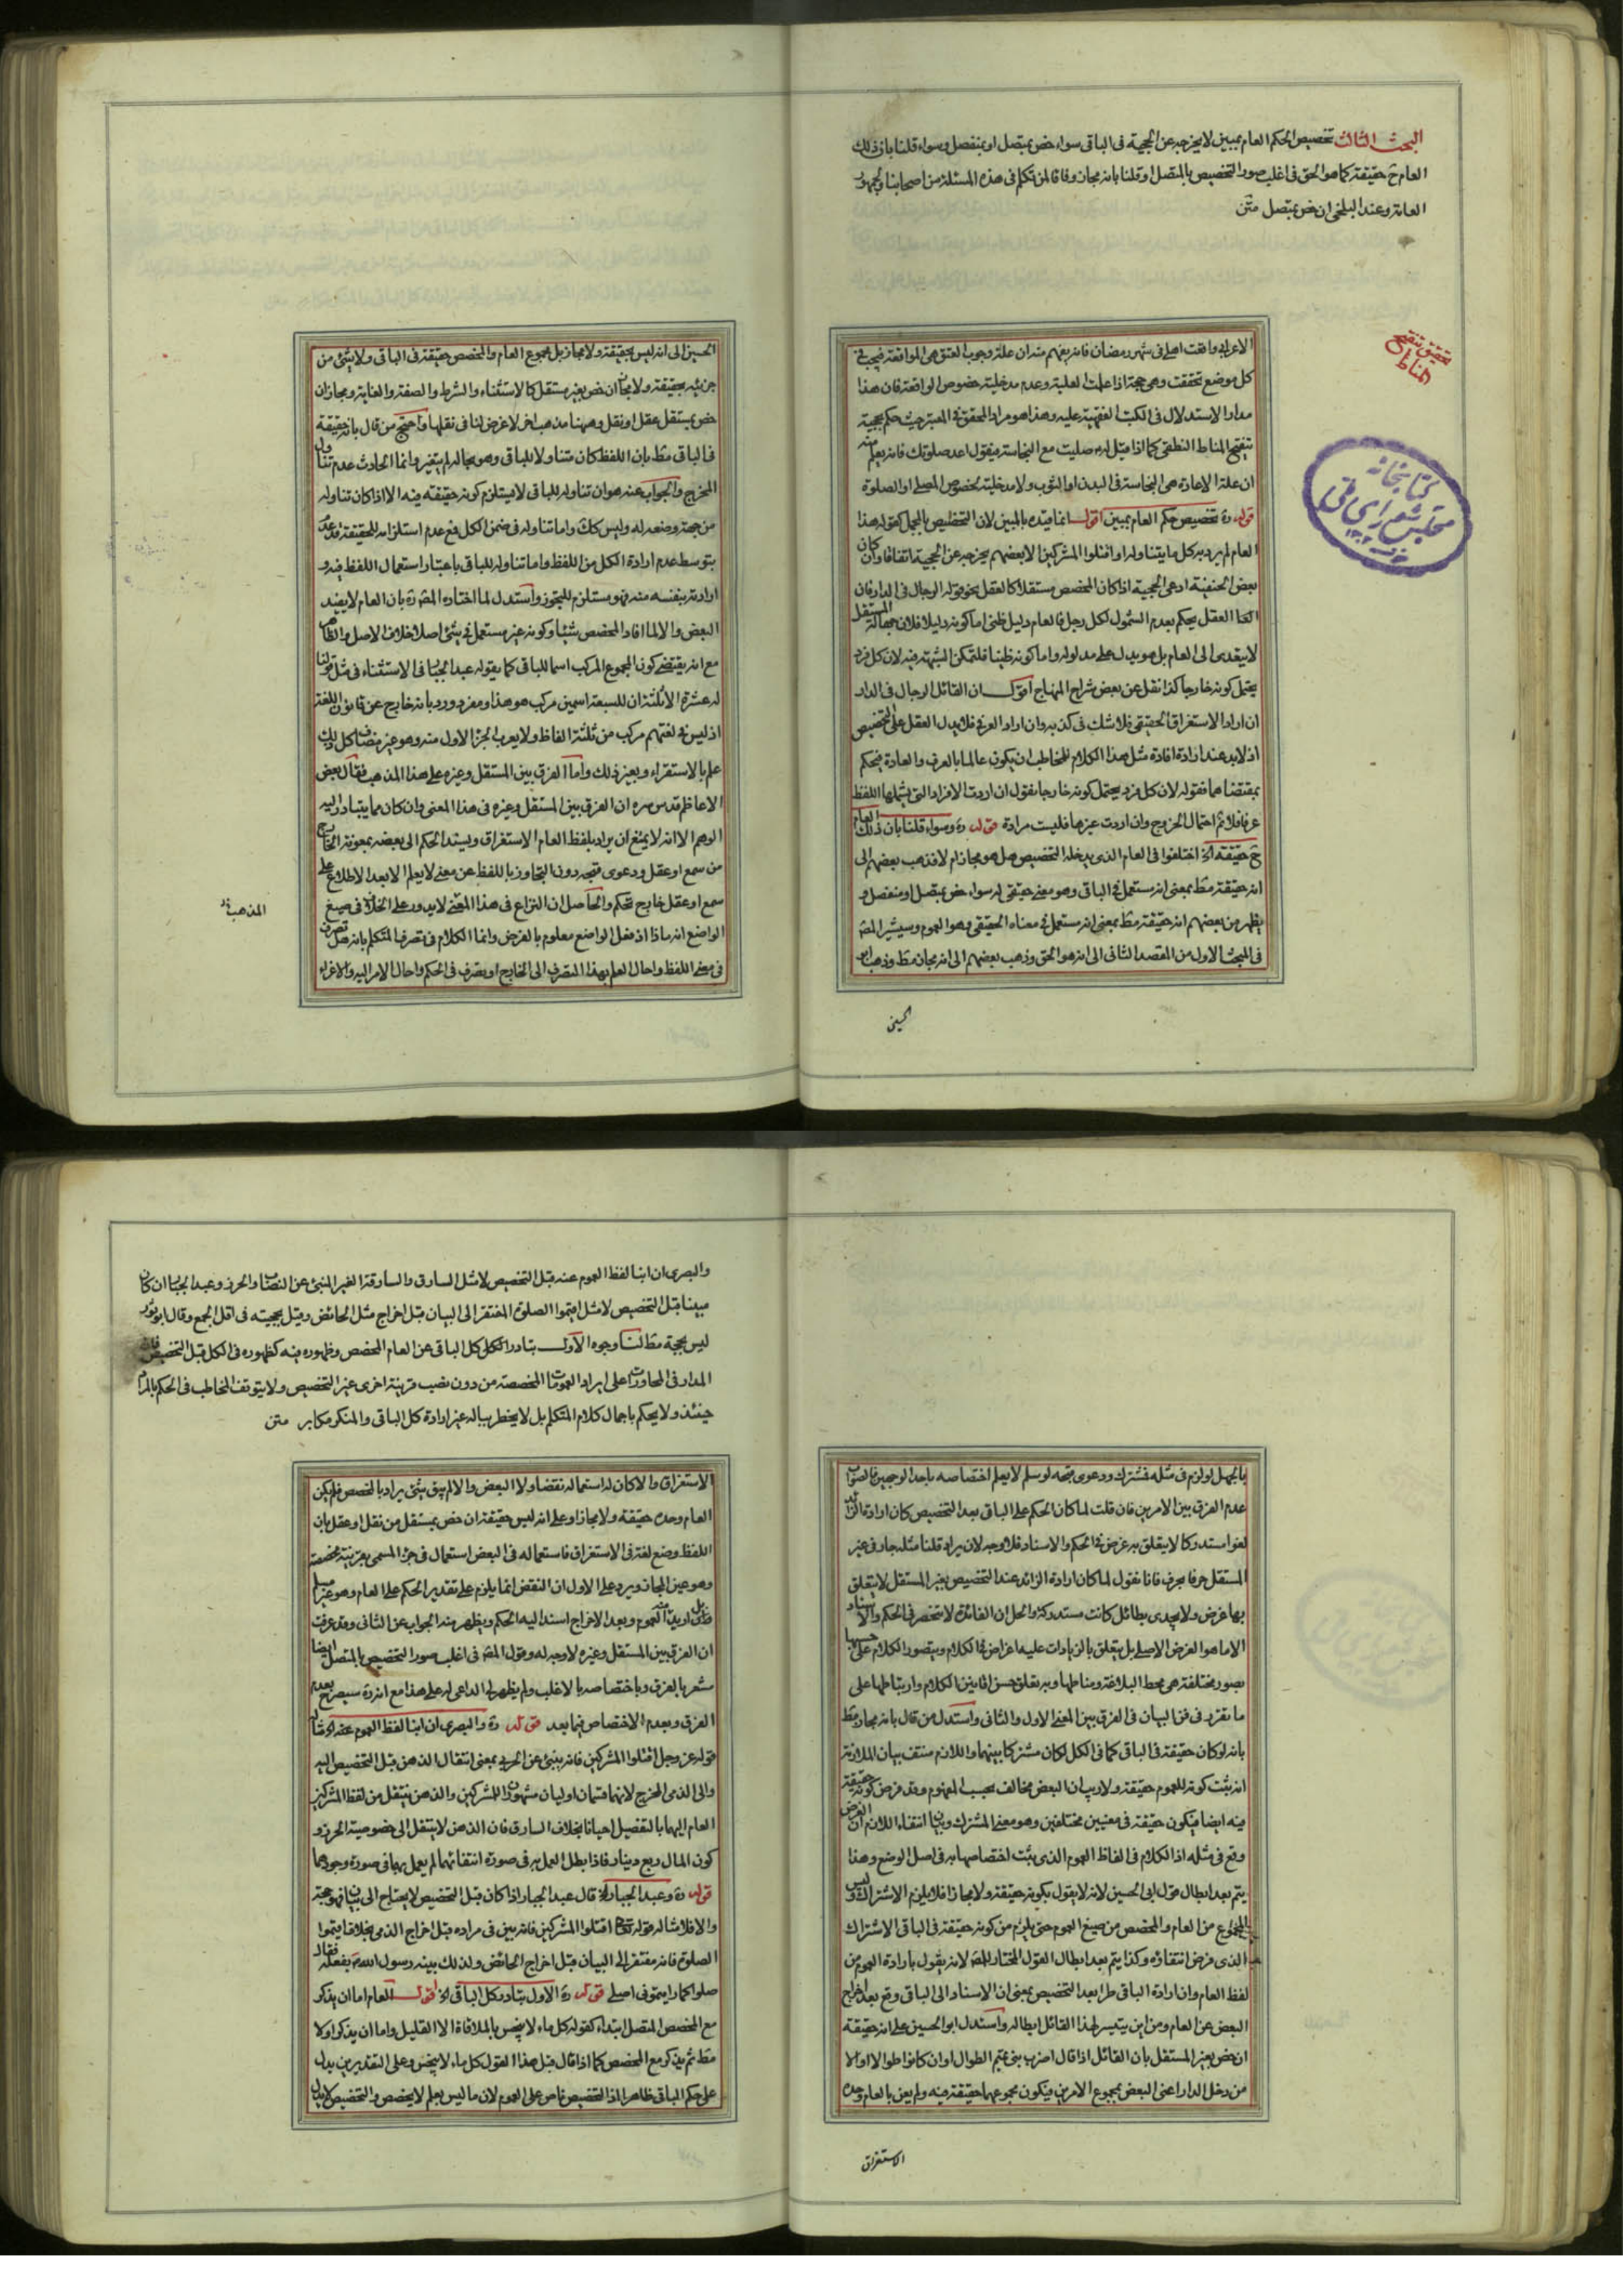 البحث الثالث تخصيص الحكم العام بمبين لا يخرجه عن الحجية فى الباقى سواء خص بمتصل او بمنفصل وسواء قلنا بان ذلك
العام ح حقيقة كما هو الحق فى اغلب صور التخصيص بالمتصل او قلنا بانه مجاز وفاقا لمن تكلم فى هذه المسئلة من اصحابنا والجمهور
العامة وعند البلخى ان خص بمتصل متن
تحقيق تنقيح
المناط
كتابخانه
مجلس شوراى ملى
الاعرابى واقعت اهلى فى شهر رمضان فانه يفهم منه ان علة وجوب العتق هى المواقعة فيجب فى
كل موضع تحققت وهى حجة اذا علمت العلية وعدم مدخلية خصوص الواقعة فان هذا
مدار الاستدلال فى الكتب الفقهية عليه وهذا هو مراد المحقق فى المعتبر حيث حكم بحجية
تنقيح المناط القطعى كما اذا قيل له ع صليت مع النجاسة فيقول اعد صلوتك فانه يعلم منه
ان علة الاعادة هى النجاسة فى البدن او الثوب ولا مدخلية لخصوص المصلى او الصلوة
قوله ره تخصيص حكم العام بمبين اقول انما قيده بالمبين لان التخصيص بالمجمل كقوله هذا
العام لم يرد به كل ما يتناوله او اقتلوا المشركين الا بعضهم يخرجه عن الحجية اتفاقا وان كان
بعض الحنفية ادعى الحجية اذا كان المخصص مستقلا كالعقل نحو قوله الرجال فى الدار فان
العقل يحكم بعدم الشمول لكل رجل فالعام دليل ظنى اما كونه دليلا فلان جهالة المستقل
لا يتعدى الى العام بل هو يدل على مدلوله واما كونه ظنيا فلتمكن الشبهة فيه لان كل فرد
يحتمل كونه خارجا كذا نقل عن بعض شراح المنهاج اقول ان القائل الرجال فى الدار
ان اراد الاستغراق الحقيقى فلا شك فى كذبه وان اراد العرفى فلا يدل العقل على التخصيص
اذ لا بد عند ارادة افادة مثل هذا الكلام للمخاطب ان يكون عالما بالعرف والعادة فيحكم
بمقتضاهما فقوله لان كل فرد يحتمل كونه خارجا نقول ان اردت الافراد التى يشملها اللفظ
عرفا فلا نم احتمال الخروج وان اردت غيرها فليست مرادة قوله ره وسواء قلنا بان ذلك العام
ح حقيقة اه اختلفوا فى العام الذى يدخله التخصيص هل هو مجاز ام لا فذهب بعضهم الى
انه حقيقة مط بمعنى انه مستعمل فى الباقى وهو معنى حقيقى له سواء خص بمتصل او منفصل و
يظهر من بعضهم انه حقيقة مط بمعنى انه مستعمل فى معناه الحقيقى وهو العموم وسيشير المص
فى المبحث الاول من المقصد الثانى الى انه هو الحق وذهب بعضهم الى انه مجاز مط وذهب ابو
الحسين
الحسين الى انه ليس بحقيقة ولا مجاز بل مجموع العام والمخصص حقيقة فى الباقى ولا شئ من
جزئيه بحقيقة ولا مجاز ان خص بغير مستقل كالاستثناء والشرط والصفة والغاية ومجاز ان
خص بمستقل عقل او نقل وههنا مذهب اخر لا غرض لنا فى نقلها واحتج من قال بانه حقيقة
فى الباقى مط بان اللفظ كان متناولا للباقى وهو بحاله لم يتغير وانما الحادث عدم تناول
المخرج والجواب عنه هو ان تناوله للباقى لا يستلزم كونه حقيقة فيه الا اذا كان تناوله
من جهة وضعه له وليس كك واما تناوله فى ضمن الكل فمع عدم استلزامه للحقيقة
بتوسط عدم ارادة الكل من اللفظ واما تناوله للباقى باعتبار استعمال اللفظ فيه و
ارادته بنفسه منه فهو مستلزم للتجوز واستدل لما اختاره المص ره بان العام لا يفيد
البعض والا لما افاد المخصص شيئا وكونه غير مستعمل فى شئ اصلا خلاف الاصل والظاهر
مع انه يقتضى كون المجموع المركب اسما للباقى كما يقوله عبد الجبار فى الاستثناء فى مثل قولنا
له عشرة الا ثلثة ان للسبعة اسمين مركب هو هذا ومفرد ورد بانه خارج عن قانون اللغة
اذ ليس فى لغتهم مركب من ثلثة الفاظ ولا يعرب الجزء الاول منه وهو غير مضاف كل ذلك
علم بالاستقراء وبغير ذلك واما الفرق بين المستقل وغيره على هذا المذهب فقال بعض
الاعاظم قدس سره ان الفرق بين المستقل وغيره فى هذا المعنى وان كان مما يتبادر اليه
الوهم الا انه لا يمتنع ان يراد بلفظ العام الاستغراق ويسند الحكم الى بعضه بمعونة الخارج
من سمع او عقل ودعوى قبحه دون التجاوز باللفظ عن معنى لا يعلم الا بعد الاطلاع على
سمع او عقل خارج تحكم والحاصل ان النزاع فى هذا المعنى لا يدور على الخلاف فى صيغ
الواضع انه ماذا اذ فعل الواضع معلوم بالفرض وانما الكلام فى تصرف المتكلم بانه هل تصرف
فى معنى اللفظ واحال لعلم بهذا التصرف الى الخارج او تصرف فى الحكم واحال الامر اليه والاغراء
المذهب
بالجهل لو لزم فى مثله فمشترك ودعوى قبحه لو سلم لا يعلم اختصاصه باحد الوجهين فالصواب
عدم الفرق بين الامرين فان قلت لما كان الحكم على الباقى بعد التخصيص كان ارادة الزائد
لغوا مستدركا لا يتعلق به غرض فى الحكم والاسناد فلا وجه لان يراد قلنا مثله جار فى غير
المستقل حرفا بحرف فانا نقول لما كان ارادة الزائد عند التخصيص بغير المستقل لا يتعلق
بها غرض ولا يجدى بطائل كانت مستدركة والحل ان الفائدة لا تنحصر فى الحكم والاسناد
الا ما هو الغرض الاصلى بل يتعلق بالزيادات عليه اغراض فى الكلام ويتصور الكلام على حسبها
بصور مختلفة هى محط البلاغة ومناطها وبه يتعلق حسن افانين الكلام وارتباطها على
ما تقرر فى فن البيان فى الفرق بين المعنى الاول والثانى واستدل من قال بانه مجاز مط
بانه لو كان حقيقة فى الباقى كما فى الكل لكان مشتركا بينهما واللازم منتف بيان الملازمة
انه ثبت كونه للعموم حقيقة ولا ريب ان البعض مخالف بحسب المفهوم وقد فرض كونه حقيقة
فيه ايضا فيكون حقيقة فى معنيين مختلفين وهو معنى المشترك وبيان انتفاء اللازم ان الفرض
وقع فى مثله اذ الكلام فى الفاظ العموم الذى يثبت اختصاصها به فى اصل الوضع وهذا
يتم بعد ابطال قول ابى الحسين لانه لا يقول بكونه حقيقة ولا مجازا فلا يلزم الاشتراك وليس
المجموع من العام والمخصص من صيغ العموم حتى يلزم من كونه حقيقة فى الباقى الاشتراك
الذى فرض انتفاؤه وكذا يتم بعد ابطال القول المختار للمص لانه يقول بارادة العموم من
لفظ العام وان ارادة الباقى طرا بعد التخصيص بمعنى ان الاسناد الى الباقى وقع بعد اخراج
البعض عن العام ومن اين يتيسر لهذا القائل ابطاله واستدل ابو الحسين على انه حقيقة
ان خص بغير المستقل بان القائل اذا قال اضرب بنى تميم الطوال او ان كانوا طوالا او الا
من دخل الدار اعنى البعض بمجموع الامرين فيكون مجموعهما حقيقة فيه ولم يعن بالعام وحده
الاستغراق
والبصرى ان انبا لفظ العموم عنه قبل التخصيص لا مثل السارق والسارقة الغير المنبئ عن النصاب والحرز وعبد الجبار ان كان
مبينا قبل التخصيص لا مثل اقيموا الصلوة المفتقر الى البيان قبل اخراج مثل الحائض وقيل بحجيته فى اقل الجمع وقال ابو ثور
ليس بحجة مط لنا وجوه الاول تبادر الكل كل الباقى عن العام المخصص وظهوره فيه كظهوره فى الكل قبل التخصيص فان
المدار فى المحاورات على ايراد العمومات المخصصة من دون نصب قرينة اخرى غير التخصيص ولا يتوقف المخاطب فى الحكم بالمرام
حينئذ ولا يحكم باجمال كلام المتكلم بل لا يخطر بباله غير ارادة كل الباقى والمنكر مكابر متن
الاستغراق والا كان له استعماله نقضا ولا البعض والا لم يبق شئ يراد بالمخصص فلم يكن
العام وحده حقيقة ولا مجازا وعلى انه ليس حقيقة ان خص بمستقل من نقل او عقل بان
اللفظ وضع لغة فى الاستغراق فاستعماله فى البعض استعمال فى جزء المسمى بقرينة مخصصة
وهو عين المجاز ويرد على الاول ان النقض انما يلزم على تقدير الحكم على العام وهو غير مسلم
بل اريد منه العموم وبعد الاخراج اسند اليه الحكم ويظهر منه الجواب عن الثانى وقد عرفت
ان الفرق بين المستقل وغيره لا وجه له وقول المص فى اغلب صور التخصيص بالمتصل ايضا
مشعر بالفرق وباختصاصه بالاغلب ولم يظهر لى الداعى له على هذا مع انه ره سيصرح بعدم
الفرق وبعدم الاختصاص فيما بعد قوله ره والبصرى ان انبا لفظ العموم عنه اه مثاله
قوله عز وجل اقتلوا المشركين فانه ينبئ عن الحربى بمعنى انتقال الذهن قبل التخصيص اليه
والى الذمى المخرج لانهما قسمان اوليان مشهوران للمشركين والذهن ينتقل من لفظ المشركين
العام اليهما بالتفصيل احيانا بخلاف السارق فان الذهن لا ينتقل الى خصوصية الحرز و
كون المال ربع دينار فاذا بطل العمل به فى صورة انتفائهما لم يعمل بها فى صورة وجودهما
قوله ره وعبد الجبار اه قال عبد الجبار اذا كان قبل التخصيص لا يحتاج الى بيان فهو حجة
والا فلا مثاله قوله تعالى اقتلوا المشركين فانه بين فى مراده قبل اخراج الذمى بخلاف اقيموا
الصلوة فانه مفتقر الى البيان قبل اخراج الحائض ولذلك بينه رسول الله ص بفعله فقال
صلوا كما رايتمونى اصلى قوله ره الاول تبادر كل الباقى اه اقول العام اما ان يذكر
مع المخصص المتصل ابتداء كقوله كل ماء لا ينجس بالملاقاة الا القليل واما ان يذكر اولا
مط ثم يذكر مع المخصص كما اذا قال قبل هذا القول كل ماء لا ينجس وعلى التقديرين يدل
على حكم الباقى ظاهرا اذ التخصيص ناص على العموم لان ما ليس بعام لا يخصص والتخصيص لا يدل